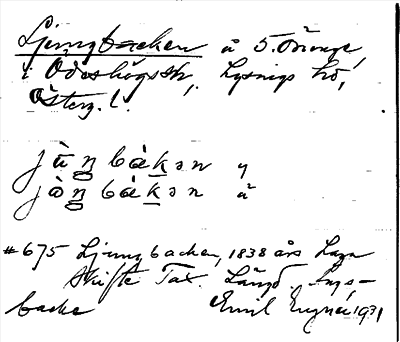 Ljungbacken å S. Ösinge,
i Ödeshögssn, Lysings hd,
Österg. l.
jùŋbàkən y
jòŋbàkən ä
#675 Ljungbacken, 1838 års Laga
skifte Tax. Längd. Ljung-
backe Emil 1931